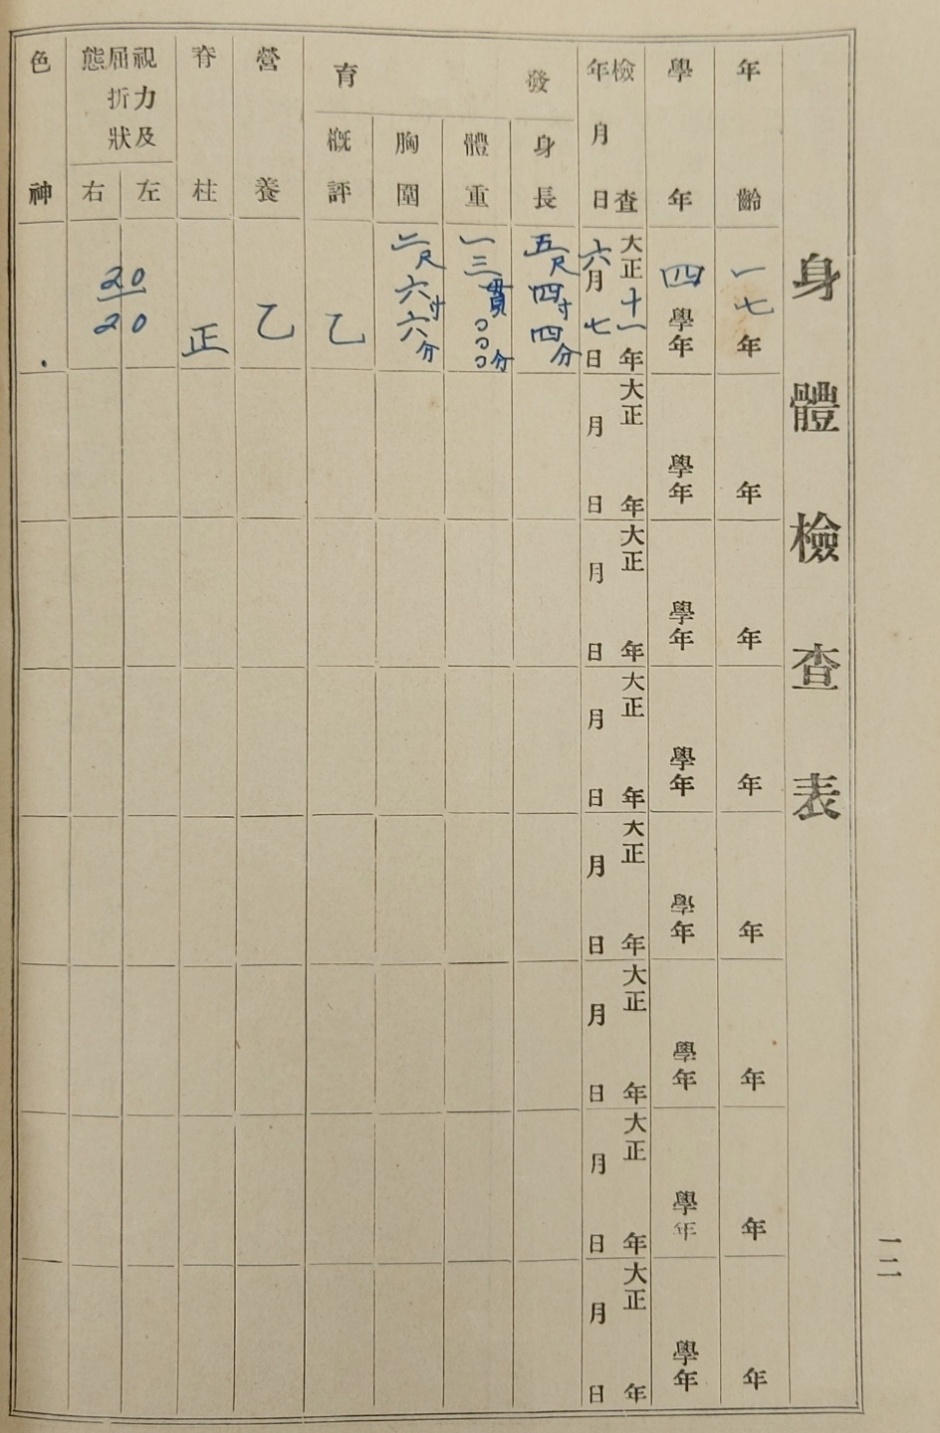 身體檢查表
年齡
學年
檢查年月日
發育
身長
體重
胸圍
概評
營養
脊柱
視力及屈折狀態
左
右
色神
一七年
四學年
大正十一年
六月七日
五尺四寸四分
一三貫〇〇〇分
二尺六寸六分
乙
乙
正
20
20
年
學年
大正 年
月 日
年
學年
大正 年
月 日
年
學年
大正 年
月 日
年
學年
大正 年
月 日
年
學年
大正 年
月 日
年
學年
大正 年
月 日
年
學年
大正 年
月 日
一二